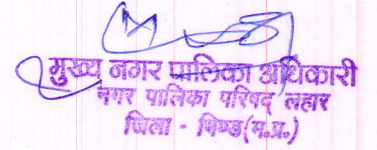 मुख्य नगर पालिका अधिकारी
नगर पालिका परिषद् लहार
जिला - भिण्ड (म.प्र.)